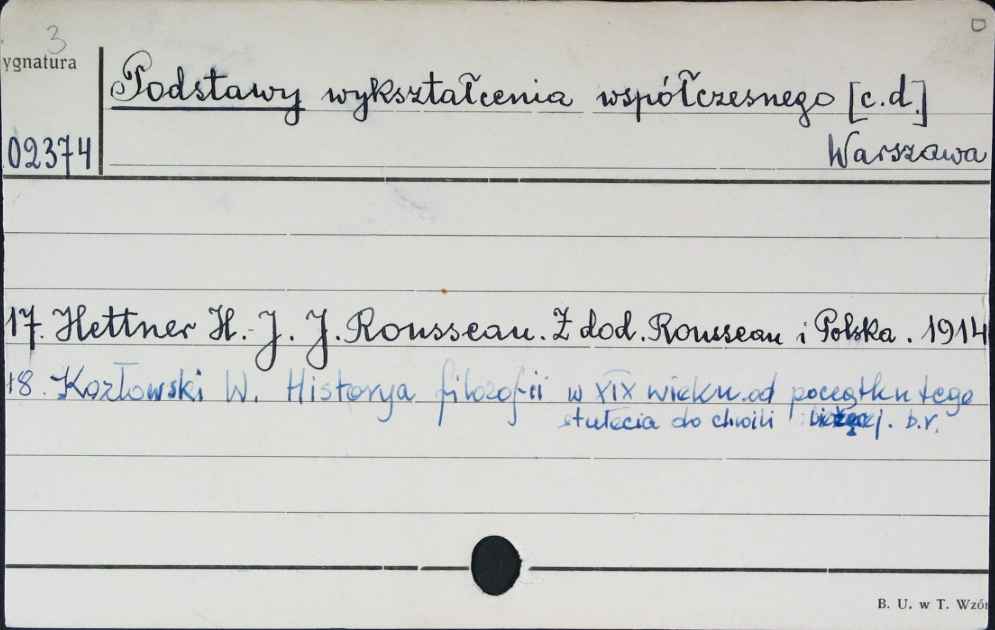 3
D
ygnatura
Podstawy wykształcenia współczesnego [c.d.]
02374
Warszawa
17. Hettner H. - J. J. Rousseau. Z dod. Rousseau i Polska. 1914
18. Kozłowski W. Historya filozofii w XIX wieku. od początku tego
stulecia do chwili bieżącej. b.r.
B. U. w T. Wzór